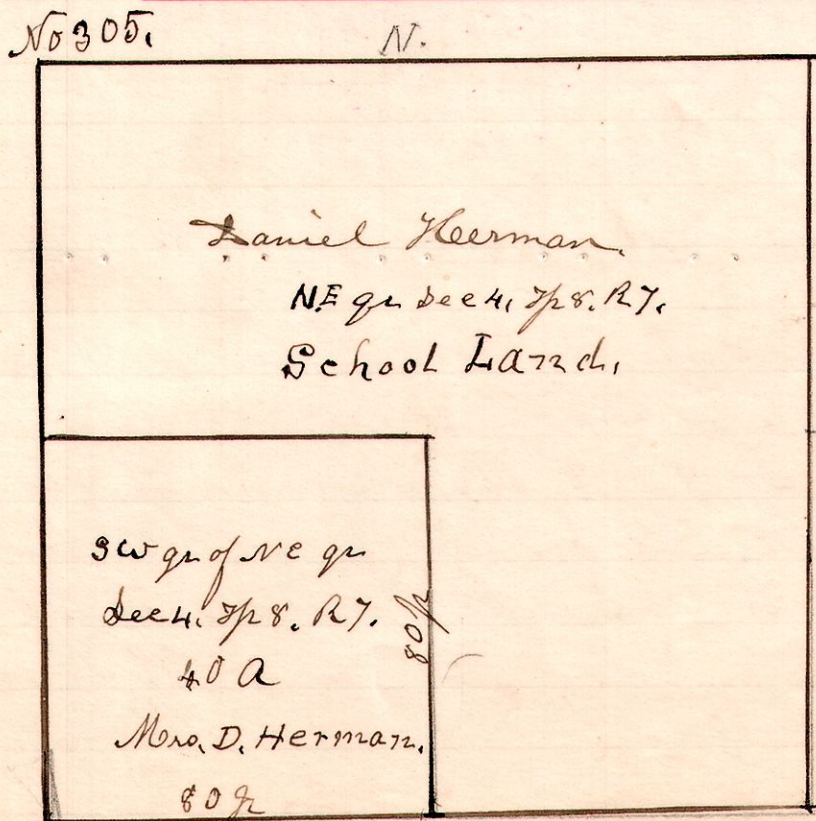 No 305.
N.
Daniel Herman.
N.E qr Sec 4, Tp 8. R 7.
School Land.
SW qr of NE qr
Sec 4. Tp 8. R 7.
40 A
Mrs. D. Herman.
80 p
80 p